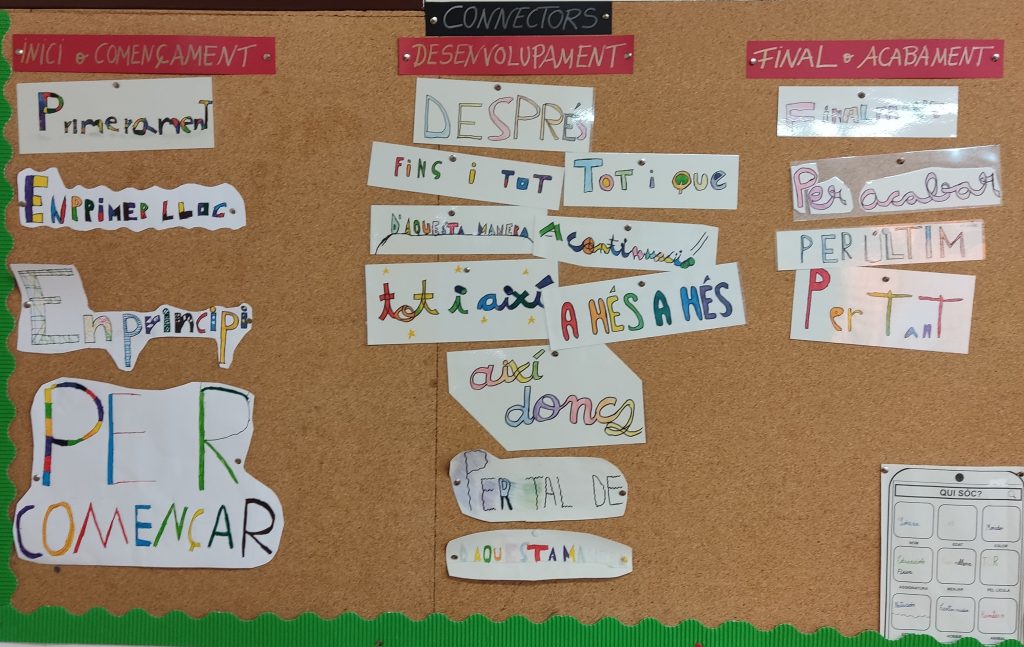 CONNECTORS
INICI o COMENÇAMENT
Primerament
ENPRIMER LLOC
En principi
PER
COMENÇAR
DESENVOLUPAMENT
DESPRÉS
FINS i TOT
TOT i QUE
D'AQUESTA MANERA
A continuació
tot i així
A MÉS A MÉS
així
doncs
PER TAL DE
D'AQUESTA MANERA
FINAL o ACABAMENT
FINALMENT
Per acabar
PER ÚLTIM
Per TanT
QUI SÓC?
NOM
EDAT
COLOR
Educació
Física
ASSIGNATURA
MENJAR
PEL·LÍCULA